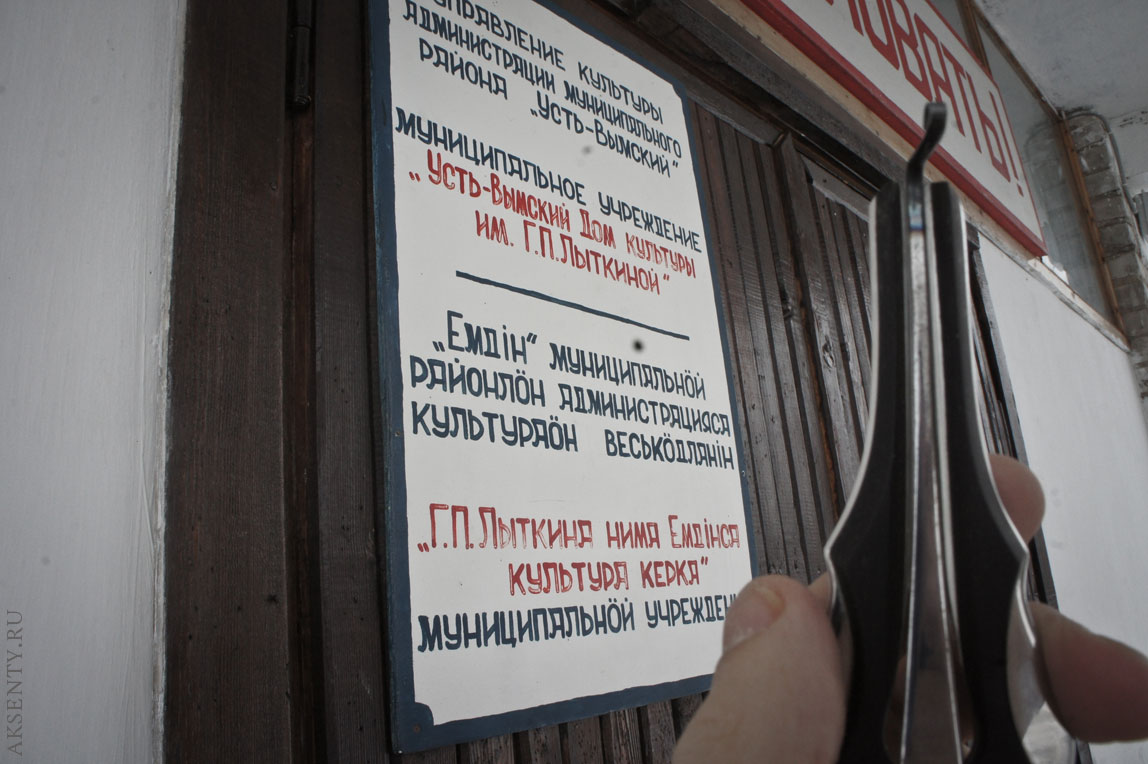 УПРАВЛЕНИЕ КУЛЬТУРЫ
АДМИНИСТРАЦИИ МУНИЦИПАЛЬНОГО
РАЙОНА „УСТЬ-ВЫМСКИЙ“
МУНИЦИПАЛЬНОЕ УЧРЕЖДЕНИЕ
„УСТЬ-ВЫМСКИЙ ДОМ КУЛЬТУРЫ
ИМ. Г.П.ЛЫТКИНОЙ“
„ЕМДІН“ МУНИЦИПАЛЬНӦЙ
РАЙОНЛӦН АДМИНИСТРАЦИЯСА
КУЛЬТУРАӦН ВЕСЬКӦДЛАНІН
„Г.П.ЛЫТКИНА НИМА ЕМДІНСА
КУЛЬТУРА КЕРКА“
МУНИЦИПАЛЬНӦЙ
AKSENTY.RU